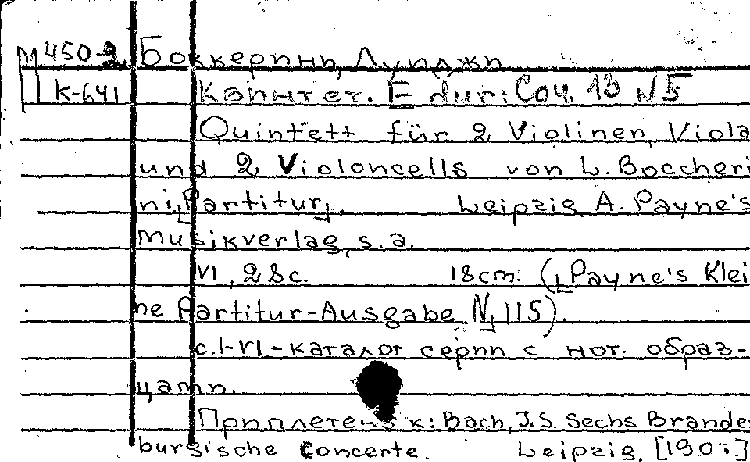 М 450-2 Боккерини, Луиджи
К-641 Квинтет. E dur: Соч. 13 N5
Quintett für 2 Violinen, Viola
und 2 Violoncells von L. Boccheri
ni[Partitur]. Leipzig A. Payne's
Musikverlag, s.a.
VI, 28c. 18cm. ([Payne's Klei
ne Partitur-Ausgabe N]115).
с. I-VI - каталог серии с нот. образ-
цами.
Приплетен к: Bach, J.S. Sechs Brande
burgische Concerte. Leipzig,